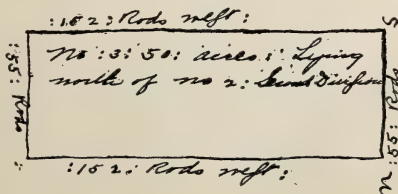 :152: Rods west:
:55: Rods
No :3: 50: acres: Lying
north of no 2: Second Division
S
N :55: Rods
:152: Rods west: